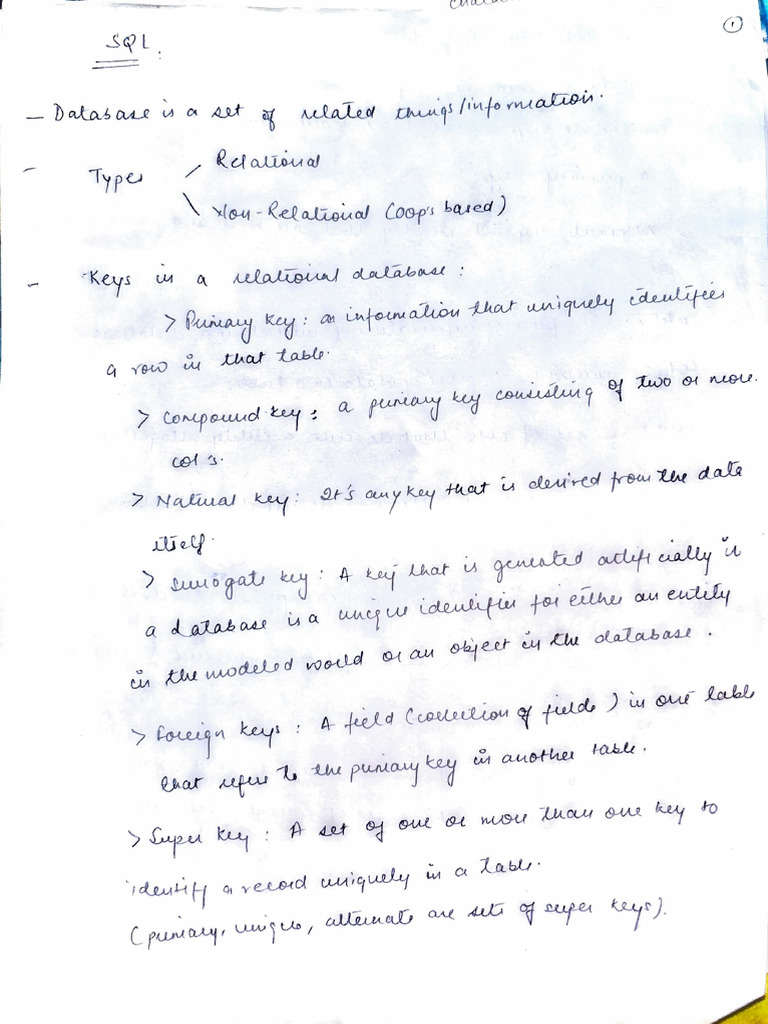 1
SQL.
- Database is a set of related things/information.
- Types / Relational
\ Non-Relational (oop's based)
- Keys in a relational database:
> Primary key: an information that uniquely identifies
a row in that table.
> Compound key: a primary key consisting of two or more
col's.
> Natural key: It's any key that is desired from the data
itself.
> Surrogate key: A key that is generated artificially in
a database is a unique identifier for either an entity
in the modeled world or an object in the database.
> Foreign keys: A field (collection of fields) in one table
that refers to the primary key in another table.
> Super key: A set of one or more than one key to
identify a record uniquely in a table.
(primary, unique, alternate are sets of super keys).